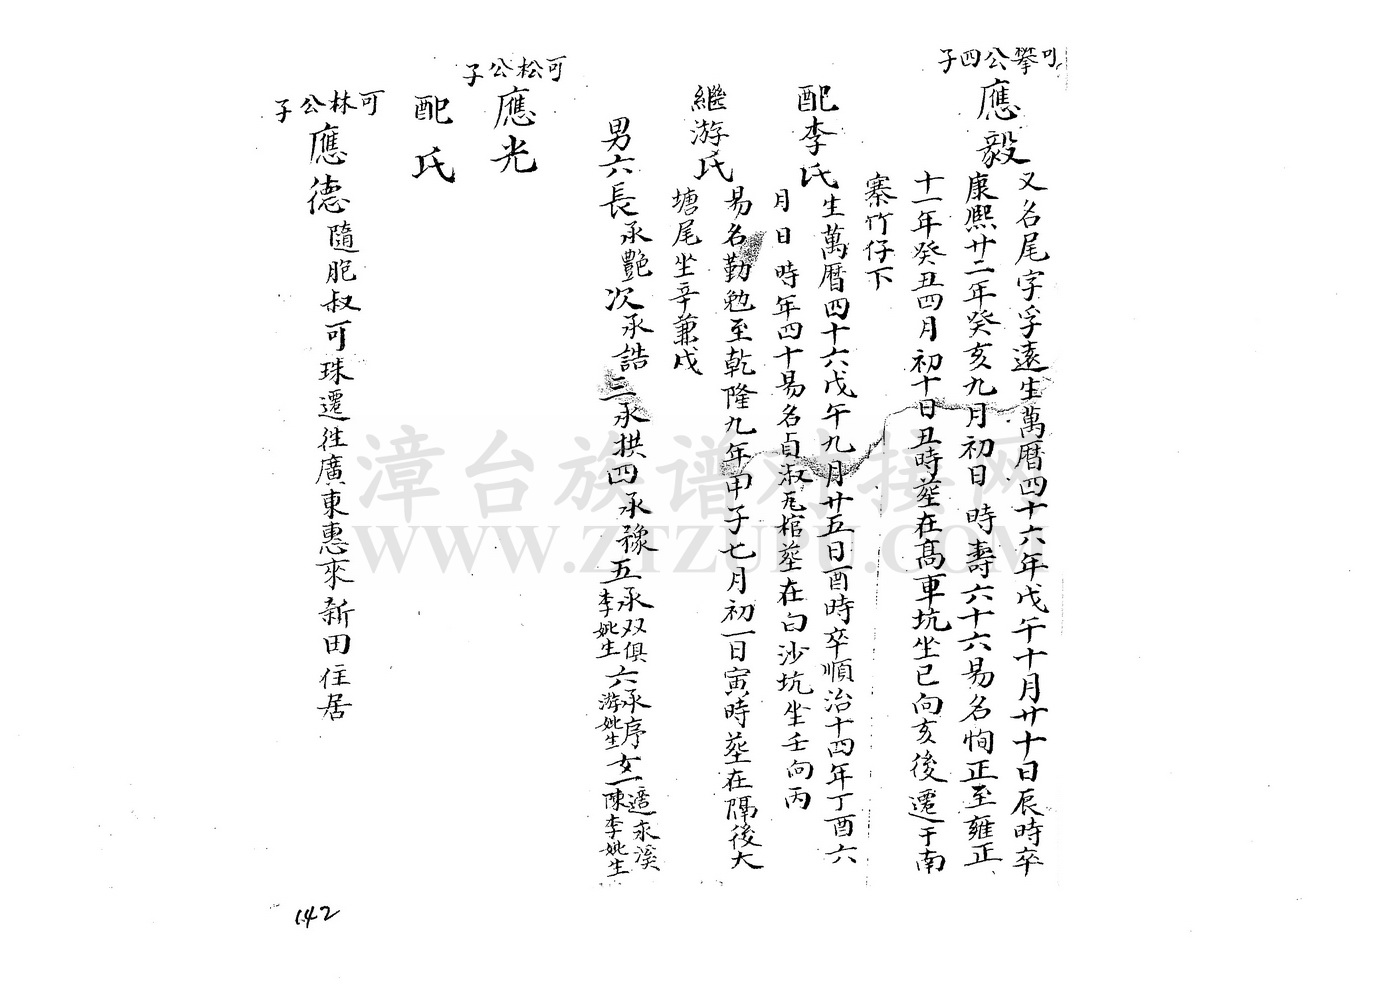 可攀公四子
應毅
又名尾字孚遠生萬曆四十六年戊午十月廿十日辰時卒
康熙廿二年癸亥九月初日 時壽六十六易名恂正至雍正
十一年癸丑四月初十日丑時塟在高車坑坐巳向亥後遷于南
寨竹仔下
配李氏
生萬曆四十六戊午九月廿五日酉時卒順治十四年丁酉六
月日 時年四十易名貞淑瓦棺塟在白沙坑坐壬向丙
繼游氏
易名勤勉至乾隆九年甲子七月初一日寅時塟在隔後大
塘尾坐辛兼戌
男六長承艷次承誥三承拱四承豫五承双俱李妣生六承序游妣生女一適永溪陳李妣生
可松公子
應光
配 氏
可林公子
應德
隨胞叔可珠遷往廣東惠來新田住居
142
漳台族谱对接网
WWW.ZTZUPU.COM